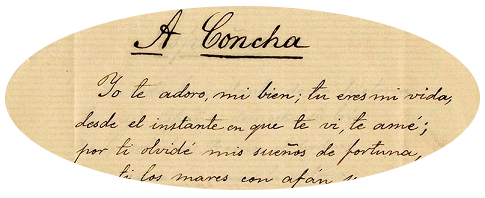 A Concha
Yo te adoro, mi bien; tu eres mi vida,
desde el instante en que te vi, te amé;
por ti olvidé mis sueños de fortuna,
ti los mares con afán